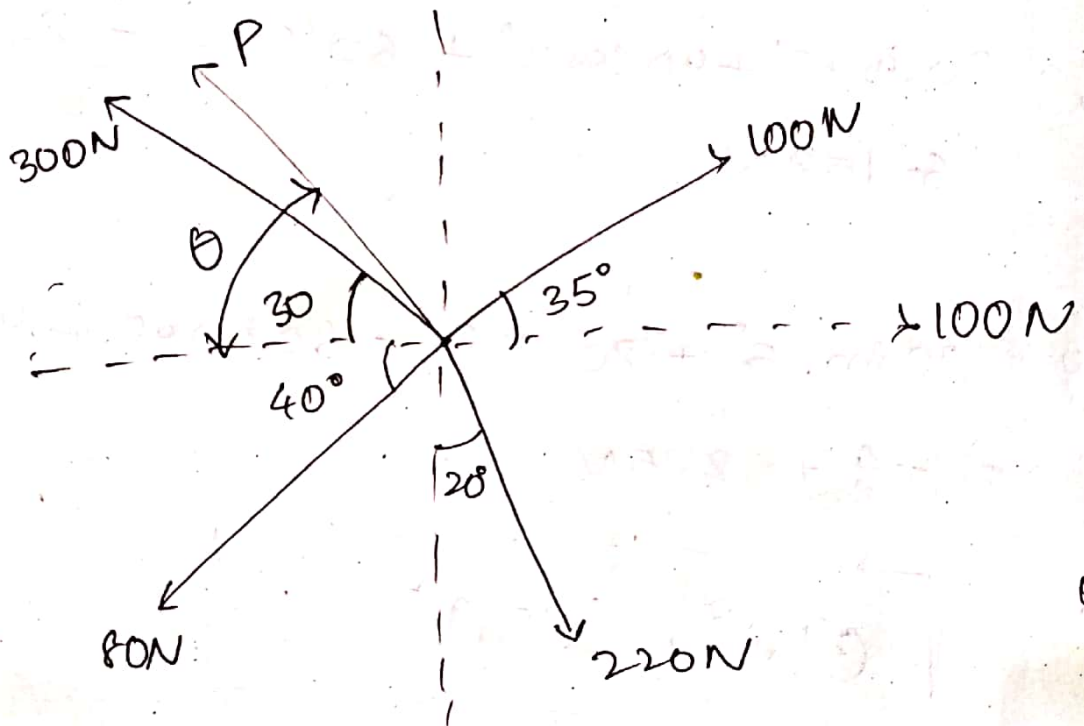 P
300N
100N
θ
30
35°
100N
40°
20°
80N
220N